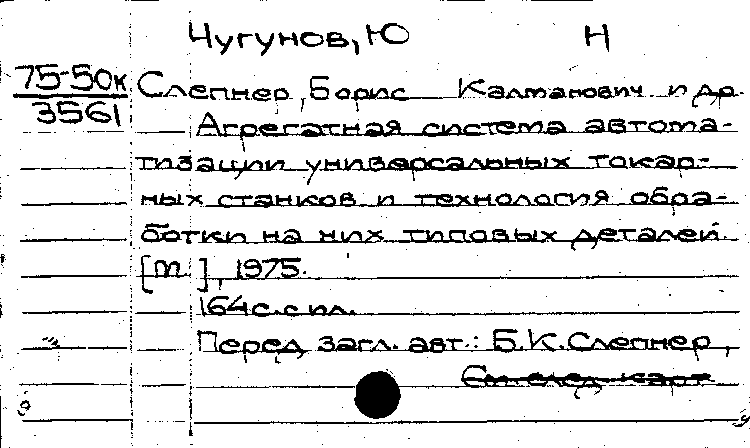 Чугунов, Ю Н
75-50к Слепнер, Борис Калманович и др.
3561
Агрегатная система автома-
тизации универсальных токар-
ных станков и технология обра-
ботки на них типовых деталей.
[М.], 1975.
164 с. с ил.
Перед загл. авт.: Б.К. Слепнер,
См. след. карт